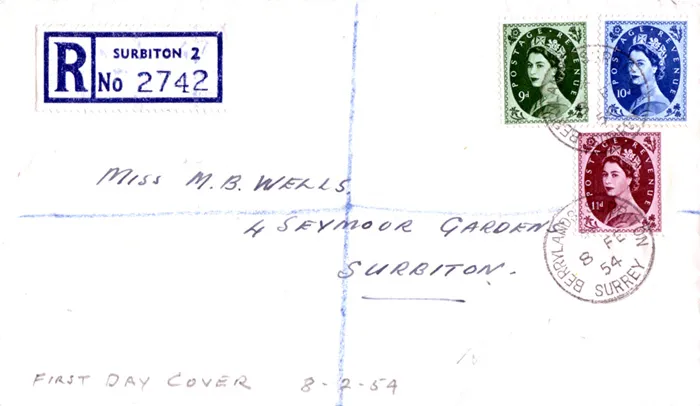 R SURBITON 2
No 2742
POSTAGE REVENUE
9d
POSTAGE REVENUE
10d
POSTAGE REVENUE
11d
MISS M.B. WELLS
4 SEYMOUR GARDENS
SURBITON.
BERRYLANDS
8 FE
54
SURREY
FIRST DAY COVER 8-2-54